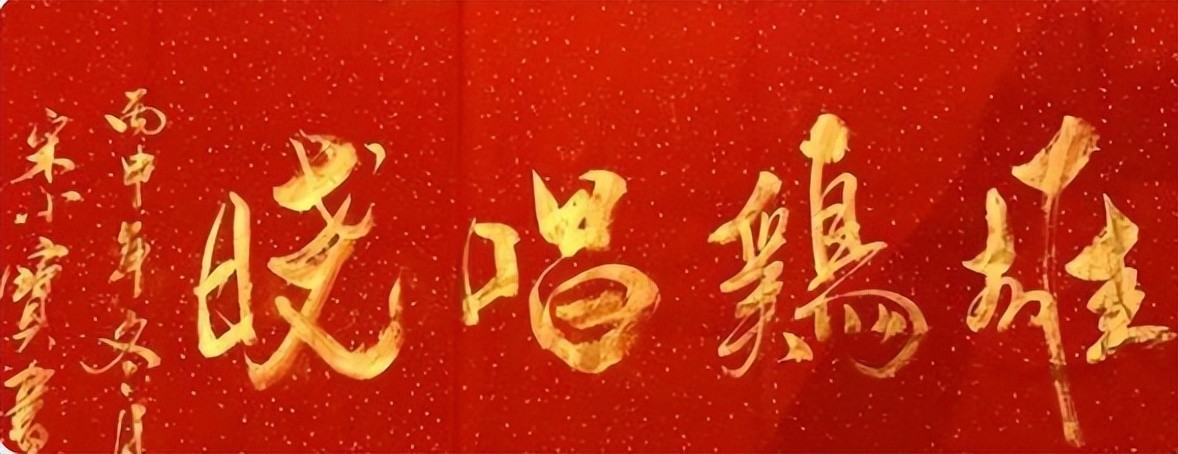 雄鷄唱晓
丙申年冬月
宋小寳書